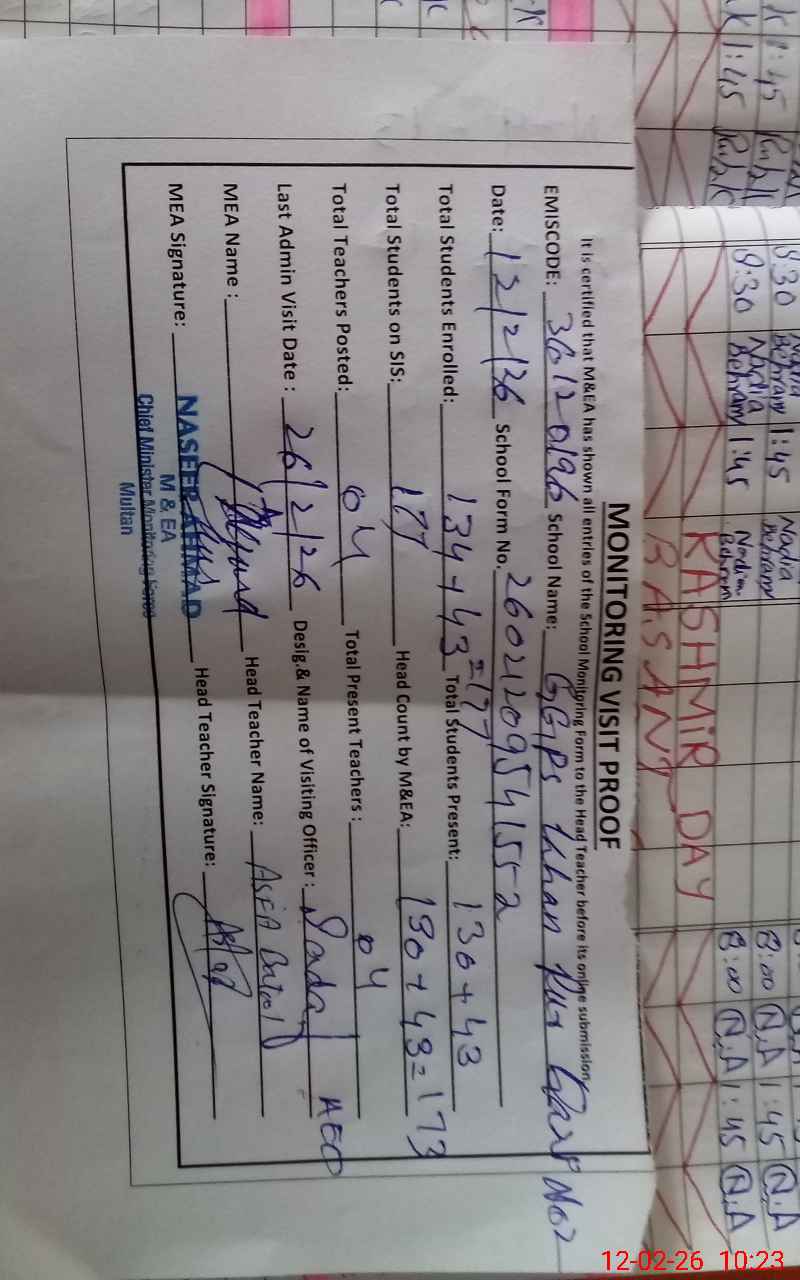 MONITORING VISIT PROOF
It is certified that M&EA has shown all entries of the School Monitoring Form to the Head Teacher before its online submission
EMISCODE: 36120196 School Name: GGPS Khan Pur No2
Date: 12/2/26 School Form No. 26021209541552
Total Students Enrolled: 134+43=177 Total Students Present: 130+43
Total Students on SIS: 177 Head Count by M&EA: 130+43=173
Total Teachers Posted: 04 Total Present Teachers: 04
Last Admin Visit Date: 26/2/26 Desig.& Name of Visiting Officer: AEO
MEA Name: Head Teacher Name: ASFA Batool
MEA Signature: Head Teacher Signature:
NASEER AHMAD
M & EA
Chief Minister Monitoring Force
Multan
KASHMIR DAY
BASANT
8:30 Nadia Behram 1:45 Nadia Behram
8:30 Nadia Behram 1:45 Nadia Behram
8:00 N.A 1:45 N.A
8:00 N.A 1:45 N.A
1:45
1:45
12-02-26 10:23